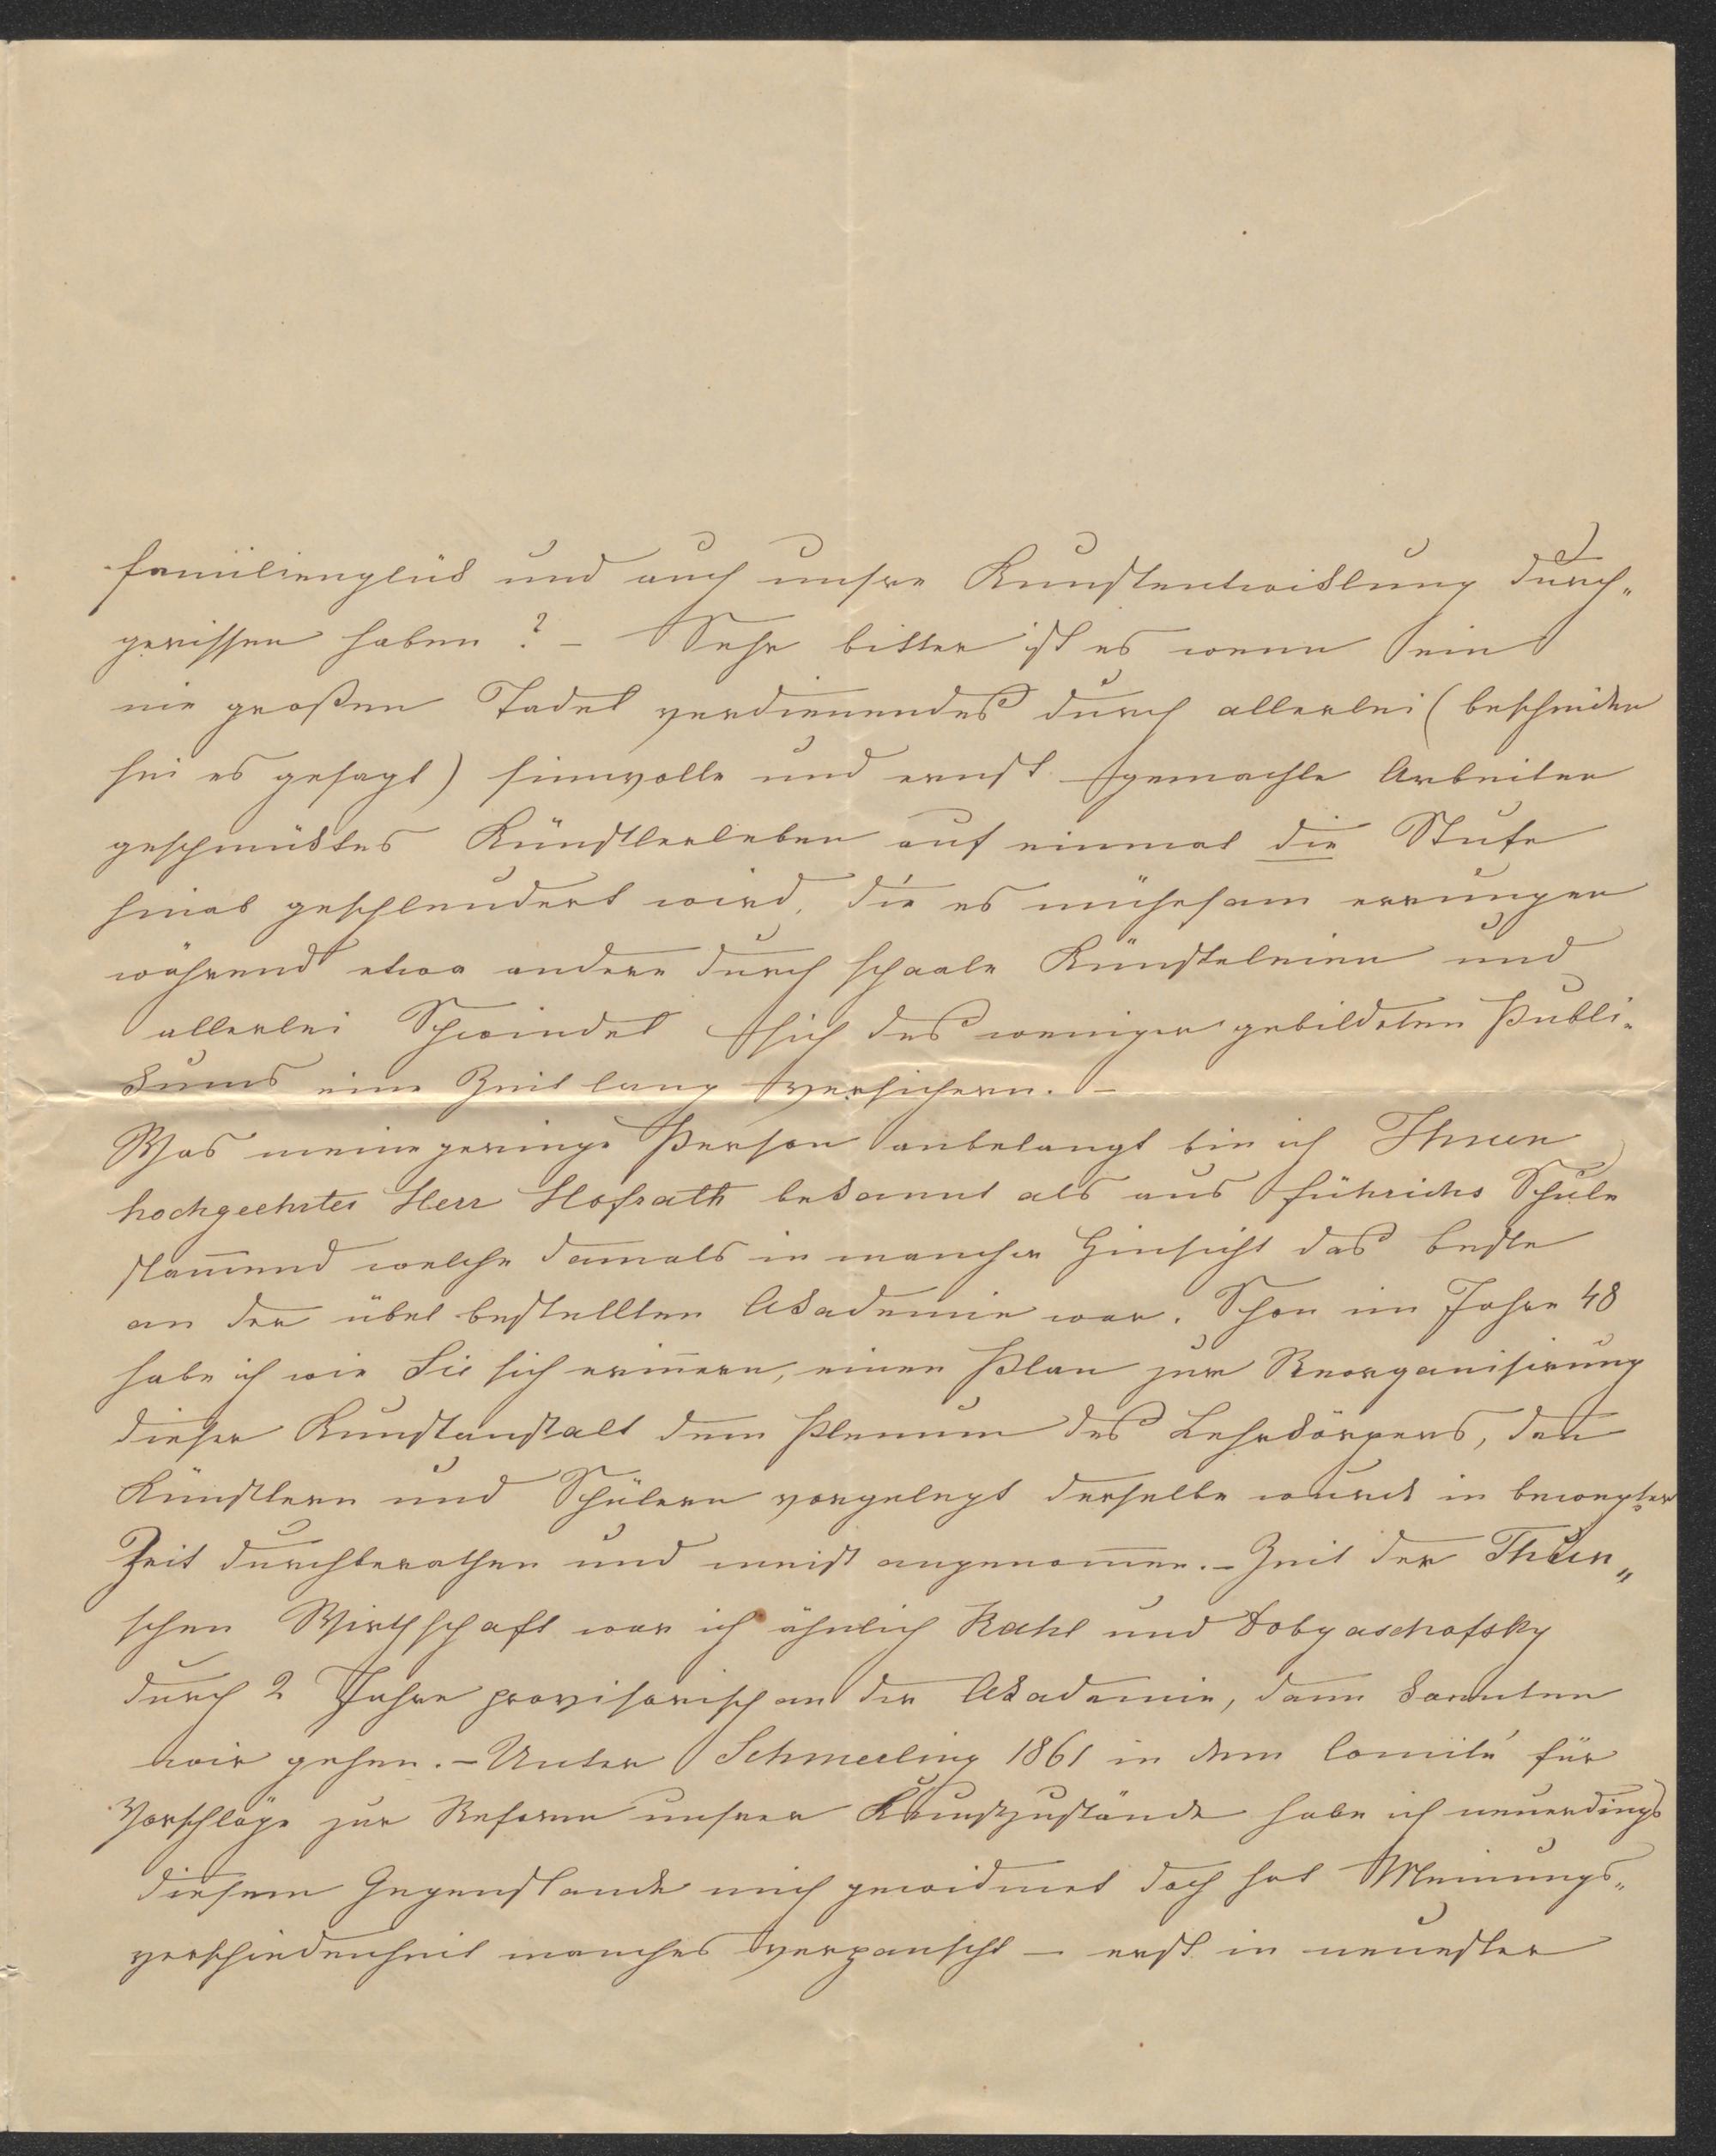 Familienglük und auch unsre Kunstentwiklung durch„
gerissen haben? – Sehr bitter ist es wenn ein
nie großen Tadel verdienendes durch allerlei (bescheiden
sei es gesagt) sinnvolle und ernst gemachte Arbeiten
geschmüktes Künstlerleben auf einmal die Stufe
hinab geschleudert wird, die es mühesam errungen
während etwa andere durch schaale Künsteleien und
allerlei Schwindel sich des weniger gebildeten Publi„
kums eine Zeit lang versichern. –
Was meine geringe Person anbelangt bin ich Ihnen
hochgeehrter Herr Hofrath bekannt als aus Führichs Schule
stam̅end welche damals in mancher Hinsicht das beste
an der übel bestellten Akademie war. Schon im Jahre 48
habe ich wie Sie sich erin̅ern, einen Plan zur Reorganisirung
dieser Kunstanstalt dem Plenum des Lehrkörpers, den
Künstlern und Schülern vorgelegt derselbe wurde in bewegter
Zeit durchberathen und meist angenom̅en. – Zeit der Thun„
schen Wirthschaft war ich ähnlich Rahl und Dobyaschofsky
durch 2 Jahre provisorisch an der Akademie, dann konnten
wir gehen. – Unter Schmerling 1861 in dem Comité für
Vorschläge zur Reform unsrer Kunstzustände habe ich neuerdings
diesem Gegenstande mich gewidmet doch hat Meinungs„
verschiedenheit manches verpanscht – erst in neuester